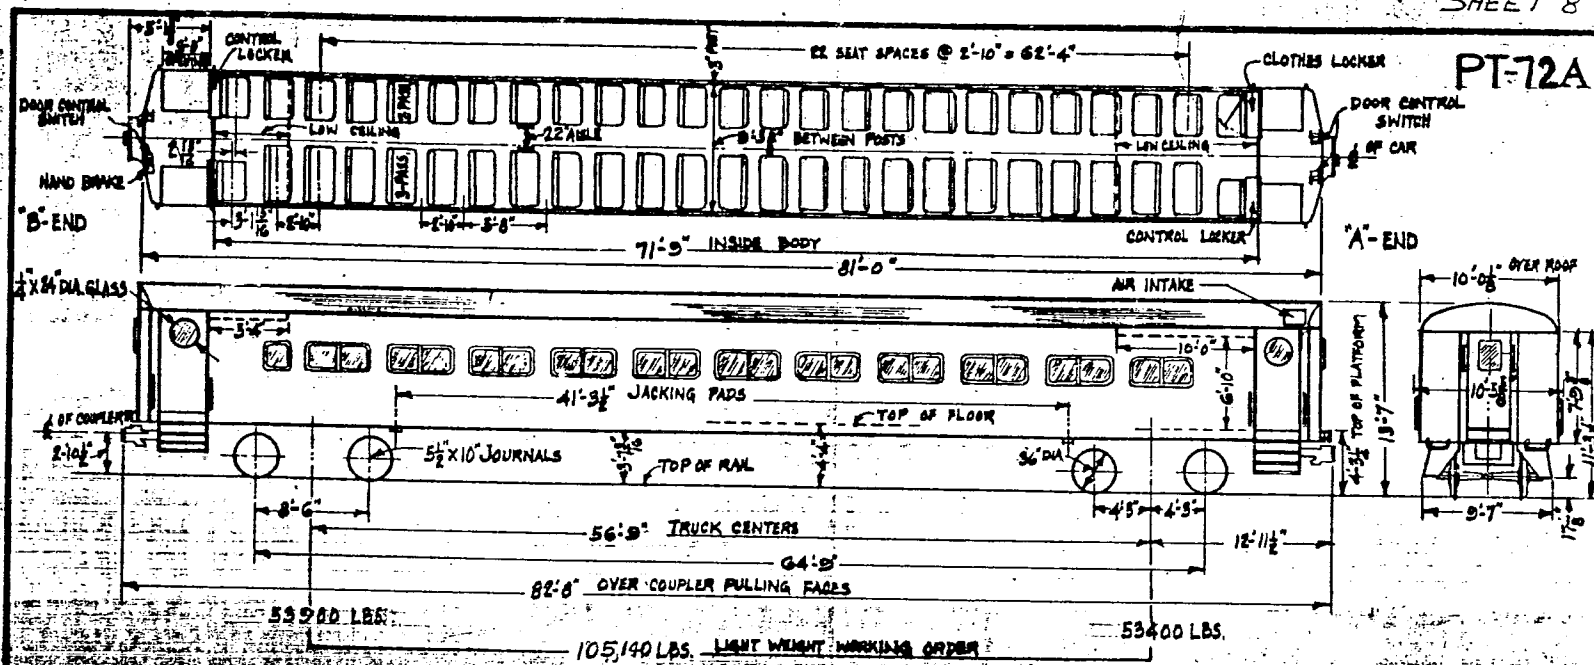 SHEET 8
PT-72A
CONTROL
LOCKER
22 SEAT SPACES @ 2'-10" = 62'-4"
CLOTHES LOCKER
DOOR CONTROL
SWITCH
DOOR CONTROL
SWITCH
LOW CEILING
22" AISLE
BETWEEN POSTS
LOW CEILING
OF CAR
2 PASS.
3-PASS.
HAND BRAKE
"B"-END
2'-10"
2'-10"
5'-8"
CONTROL LOCKER
"A"-END
71'-9" INSIDE BODY
81'-0"
DIA. GLASS
AIR INTAKE
10'-0⅛" OVER ROOF
5'-6"
10'-0"
6'-10"
41'-3½" JACKING PADS
TOP OF FLOOR
4'-3½" TOP OF PLATFORM
13'-7"
OF COUPLER
2'-10½"
5½" X 10" JOURNALS
TOP OF RAIL
36" DIA
8'-6"
4'-3"
4'-3"
9'-7"
56'-9" TRUCK CENTERS
12'-11½"
64'-9"
82'-8" OVER COUPLER PULLING FACES
53900 LBS.
53400 LBS.
105,140 LBS. LIGHT WEIGHT WORKING ORDER